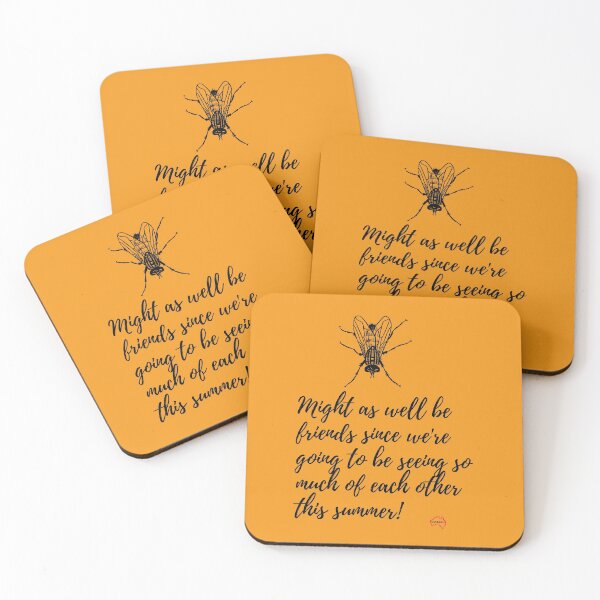 Might as well be
we're
Might as well be
friends since we're
going to be seeing so
Might as well be
friends since we're
going to be
much of each
this summer!
Might as well be
friends since we're
going to be seeing so
much of each other
this summer!